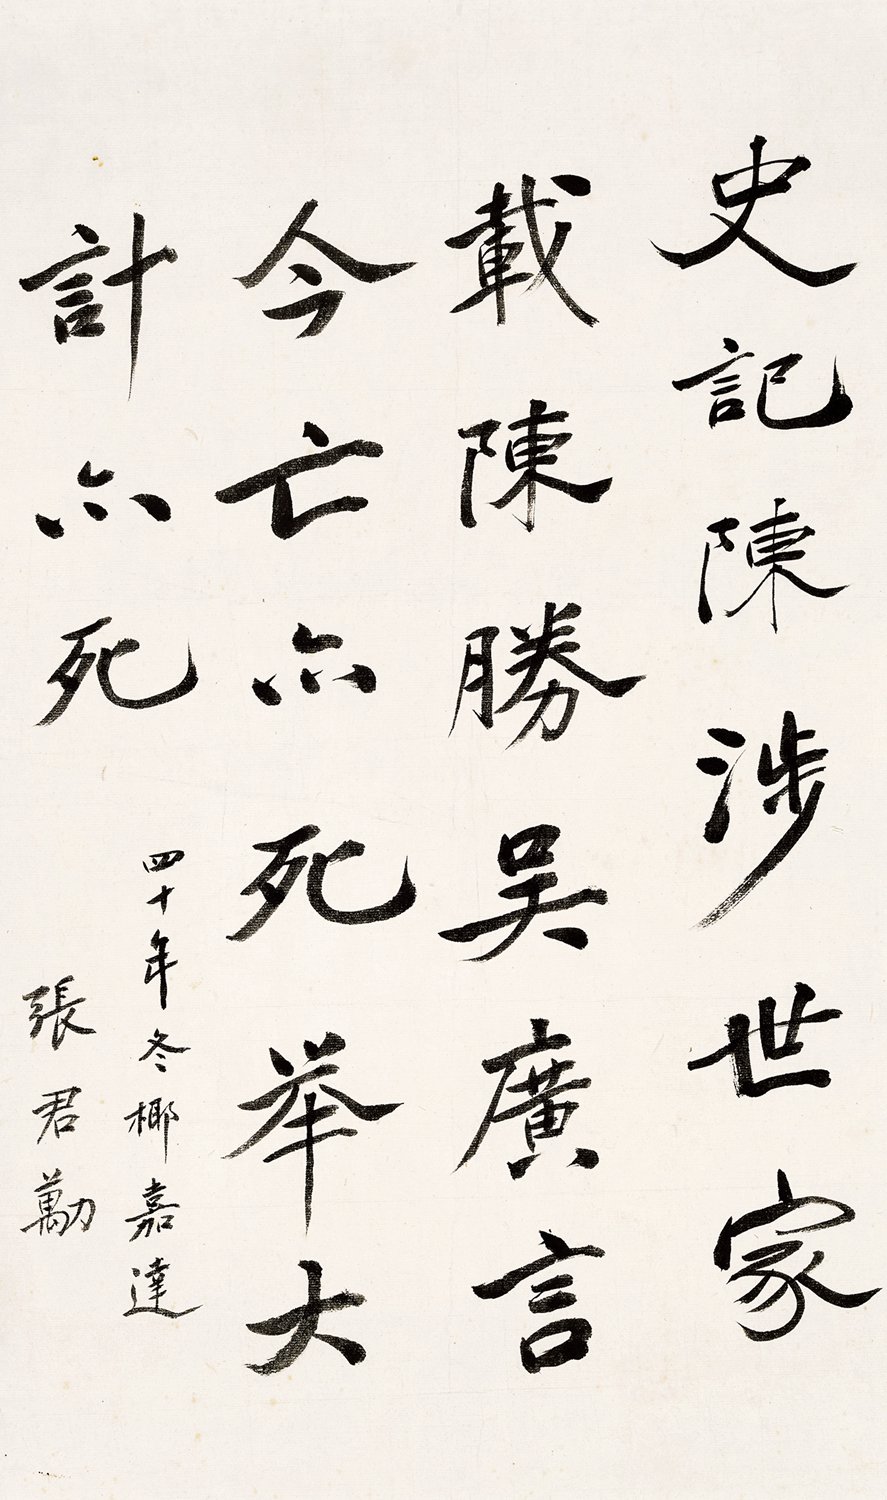 史記陳涉世家
載陳勝吳廣言
今亡亦死举大
計亦死
四十年冬椰嘉達
張君勱